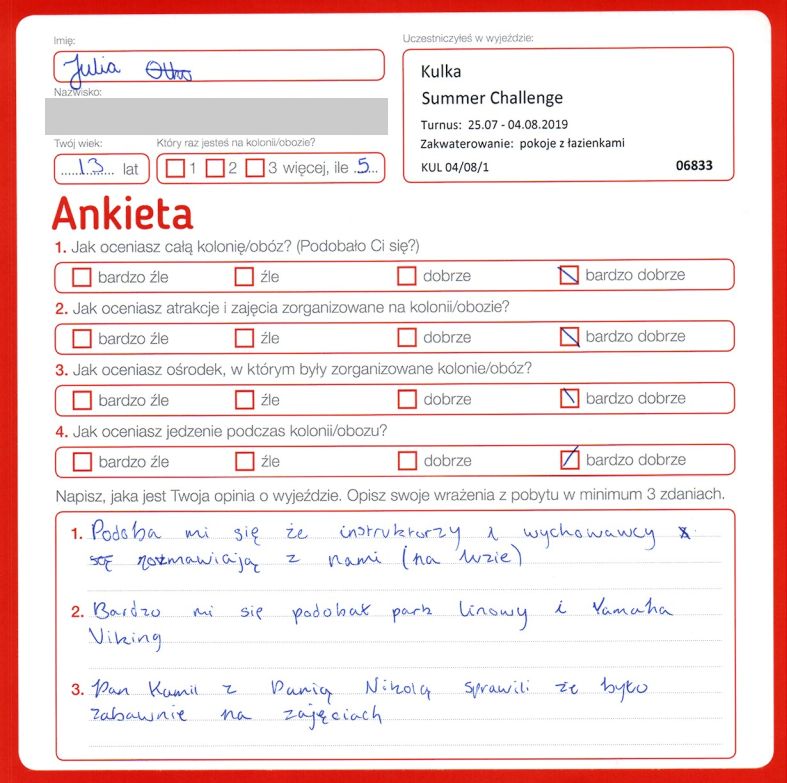 Imię:
Julia Otto
Nazwisko:
Twój wiek:
Który raz jesteś na kolonii/obozie?
.....13.... lat
1 2 3 więcej, ile .5...
Uczestniczyłeś w wyjeździe:
Kulka
Summer Challenge
Turnus: 25.07 - 04.08.2019
Zakwaterowanie: pokoje z łazienkami
KUL 04/08/1 06833
Ankieta
1. Jak oceniasz całą kolonię/obóz? (Podobało Ci się?)
bardzo źle źle dobrze bardzo dobrze
2. Jak oceniasz atrakcje i zajęcia zorganizowane na kolonii/obozie?
bardzo źle źle dobrze bardzo dobrze
3. Jak oceniasz ośrodek, w którym były zorganizowane kolonie/obóz?
bardzo źle źle dobrze bardzo dobrze
4. Jak oceniasz jedzenie podczas kolonii/obozu?
bardzo źle źle dobrze bardzo dobrze
Napisz, jaka jest Twoja opinia o wyjeździe. Opisz swoje wrażenia z pobytu w minimum 3 zdaniach.
1. Podoba mi się że instruktorzy i wychowawcy
rozmawiają z nami (na luzie)
2. Bardzo mi się podobał park linowy i Yamaha
Viking
3. Pan Kamil z Panią Nikolą sprawili że było
zabawnie na zajęciach